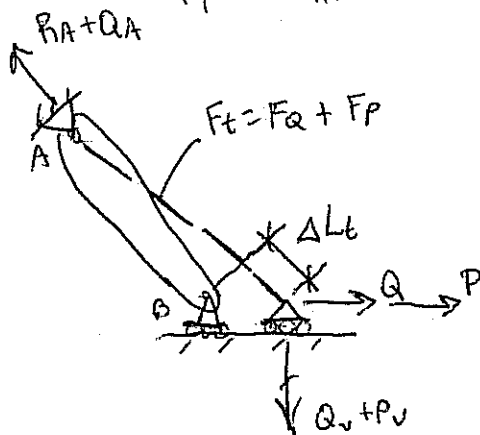 RA+QA
A
Ft = FQ + FP
ΔLt
B
Q
P
Qv+Pv